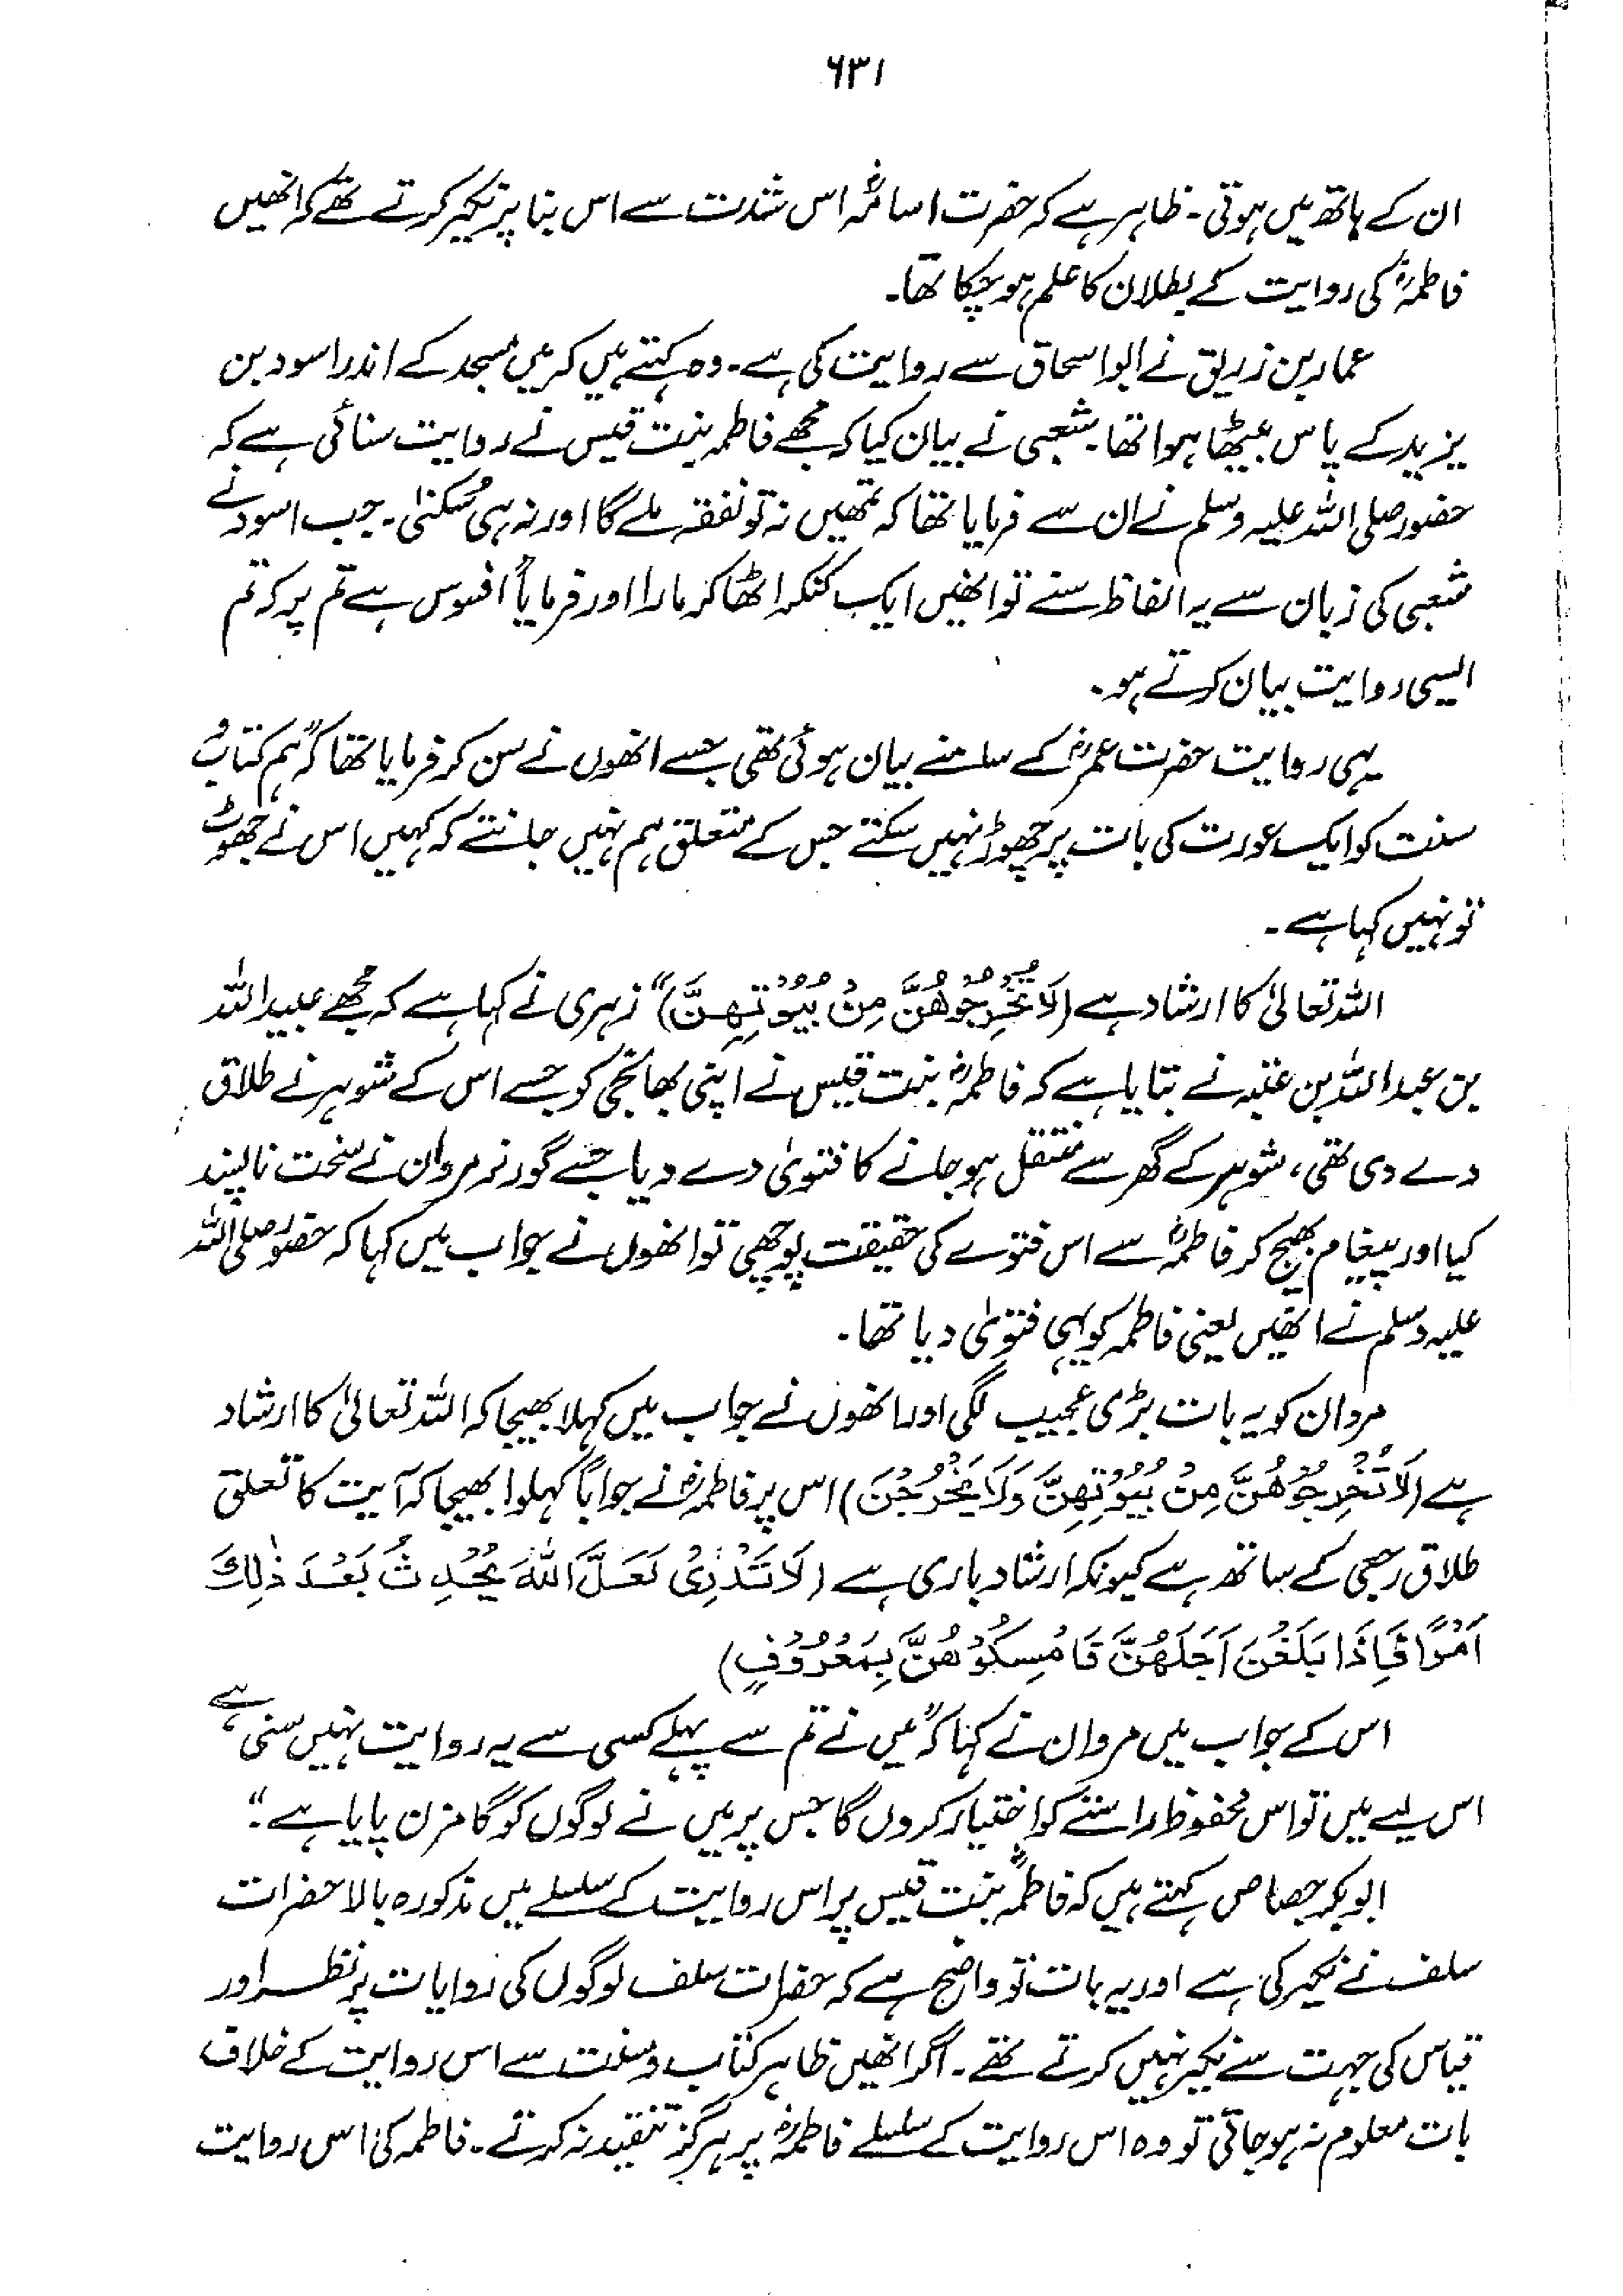 ۶۳۱
ان کے ہاتھ میں ہوتی۔ ظاہر ہے کہ حضرت اسامہؓ اس شدت سے اس بنا پر نکیر کرتے تھے کہ انھیں
فاطمہؓ کی روایت کے بطلان کا علم ہو چکا تھا۔
عمار بن زریق نے ابو اسحاق سے روایت کی ہے۔ وہ کہتے ہیں کہ میں مسجد کے اندر اسود بن
یزید کے پاس بیٹھا ہوا تھا۔ شعبی نے بیان کیا کہ مجھے فاطمہ بنت قیس نے روایت سنائی ہے کہ
حضور صلی اللہ علیہ وسلم نے ان سے فرمایا تھا کہ تمھیں نہ تو نفقہ ملے گا اور نہ ہی سُکنیٰ۔ جب اسود نے
شعبی کی زبان سے یہ الفاظ سنے تو انھیں ایک کنکر اٹھا کر مارا اور فرمایا "افسوس ہے تم پر کہ تم
ایسی روایت بیان کرتے ہو۔
یہی روایت حضرت عمرؓ کے سامنے بیان ہوئی تھی جسے انھوں نے سن کر فرمایا تھا کہ "ہم کتاب و
سنت کو ایک عورت کی بات پر چھوڑ نہیں سکتے جس کے متعلق ہم نہیں جانتے کہ کہیں اس نے جھوٹ
تو نہیں کہا ہے۔
اللہ تعالیٰ کا ارشاد ہے (لَا تُخْرِجُوْهُنَّ مِنْ بُيُوْتِهِنَّ) "زہری نے کہا ہے کہ مجھے عبید اللہ
بن عبداللہ بن عتبہ نے بتایا ہے کہ فاطمہؓ بنت قیس نے اپنی بھانجی کو جسے اس کے شوہر نے طلاق
دے دی تھی، شوہر کے گھر سے منتقل ہو جانے کا فتویٰ دے دیا جسے گورنر مروان نے سخت ناپسند
کیا اور پیغام بھیج کر فاطمہؓ سے اس فتوے کی حقیقت پوچھی تو انھوں نے جواب میں کہا کہ حضور صلی اللہ
علیہ وسلم نے انھیں یعنی فاطمہ کو یہی فتویٰ دیا تھا۔
مروان کو یہ بات بڑی عجیب لگی اور انھوں نے جواب میں کہلا بھیجا کہ اللہ تعالیٰ کا ارشاد
ہے (لَا تُخْرِجُوْهُنَّ مِنْ بُيُوْتِهِنَّ وَلَا يَخْرُجْنَ) اس پر فاطمہؓ نے جواباً کہلوا بھیجا کہ آیت کا تعلق
طلاق رجعی کے ساتھ ہے کیونکہ ارشاد باری ہے (لَا تَدْرِىْ لَعَلَّ اللهَ يُحْدِثُ بَعْدَ ذٰلِكَ
اَمْرًا فَاِذَا بَلَغْنَ اَجَلَهُنَّ فَامْسِكُوْهُنَّ بِمَعْرُوْفٍ)
اس کے جواب میں مروان نے کہا کہ "میں نے تم سے پہلے کسی سے یہ روایت نہیں سنی ہے،
اس لیے میں تو اس محفوظ راستے کو اختیار کروں گا جس پر میں نے لوگوں کو گامزن پایا ہے"۔
ابوبکر جصاص کہتے ہیں کہ فاطمہؓ بنت قیس پر اس روایت کے سلسلے میں مذکورہ بالا حضرات
سلف نے نکیر کی ہے اور یہ بات تو واضح ہے کہ حضرات سلف لوگوں کی روایات پر نظر اور
قیاس کی جہت سے نکیر نہیں کرتے تھے۔ اگر انھیں ظاہر کتاب و سنت سے اس روایت کے خلاف
بات معلوم نہ ہو جاتی تو وہ اس روایت کے سلسلے فاطمہؓ پر ہرگز تنقید نہ کرتے۔ فاطمہ کی اس روایت